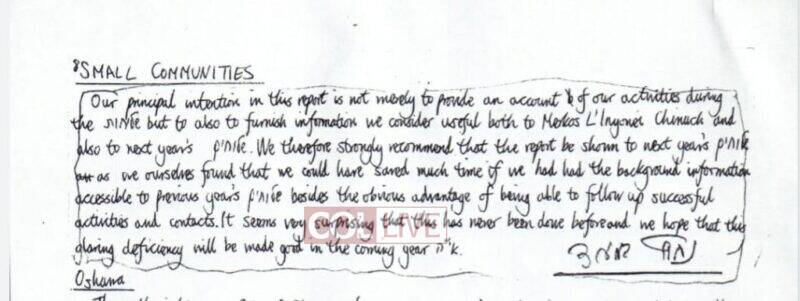 SMALL COMMUNITIES
Our principal intention in this report is not merely to provide an account of our activities during
the שליחות but to also to furnish information we consider useful both to Merkos L'Inyonei Chinuch and
also to next year's שלוחים. We therefore strongly recommend that the report be shown to next year's שלוחים
as we ourselves found that we could have saved much time if we had had the background information
accessible to previous year's שלוחים besides the obvious advantage of being able to follow up successful
activities and contacts. It seems very surprising that this has never been done before and we hope that this
glaring deficiency will be made good in the coming year אי"ה.
Oshawa
COLLIVE